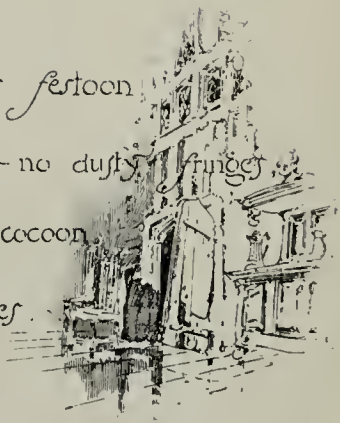 festoon
- no dusty fringes
cocoon
es.